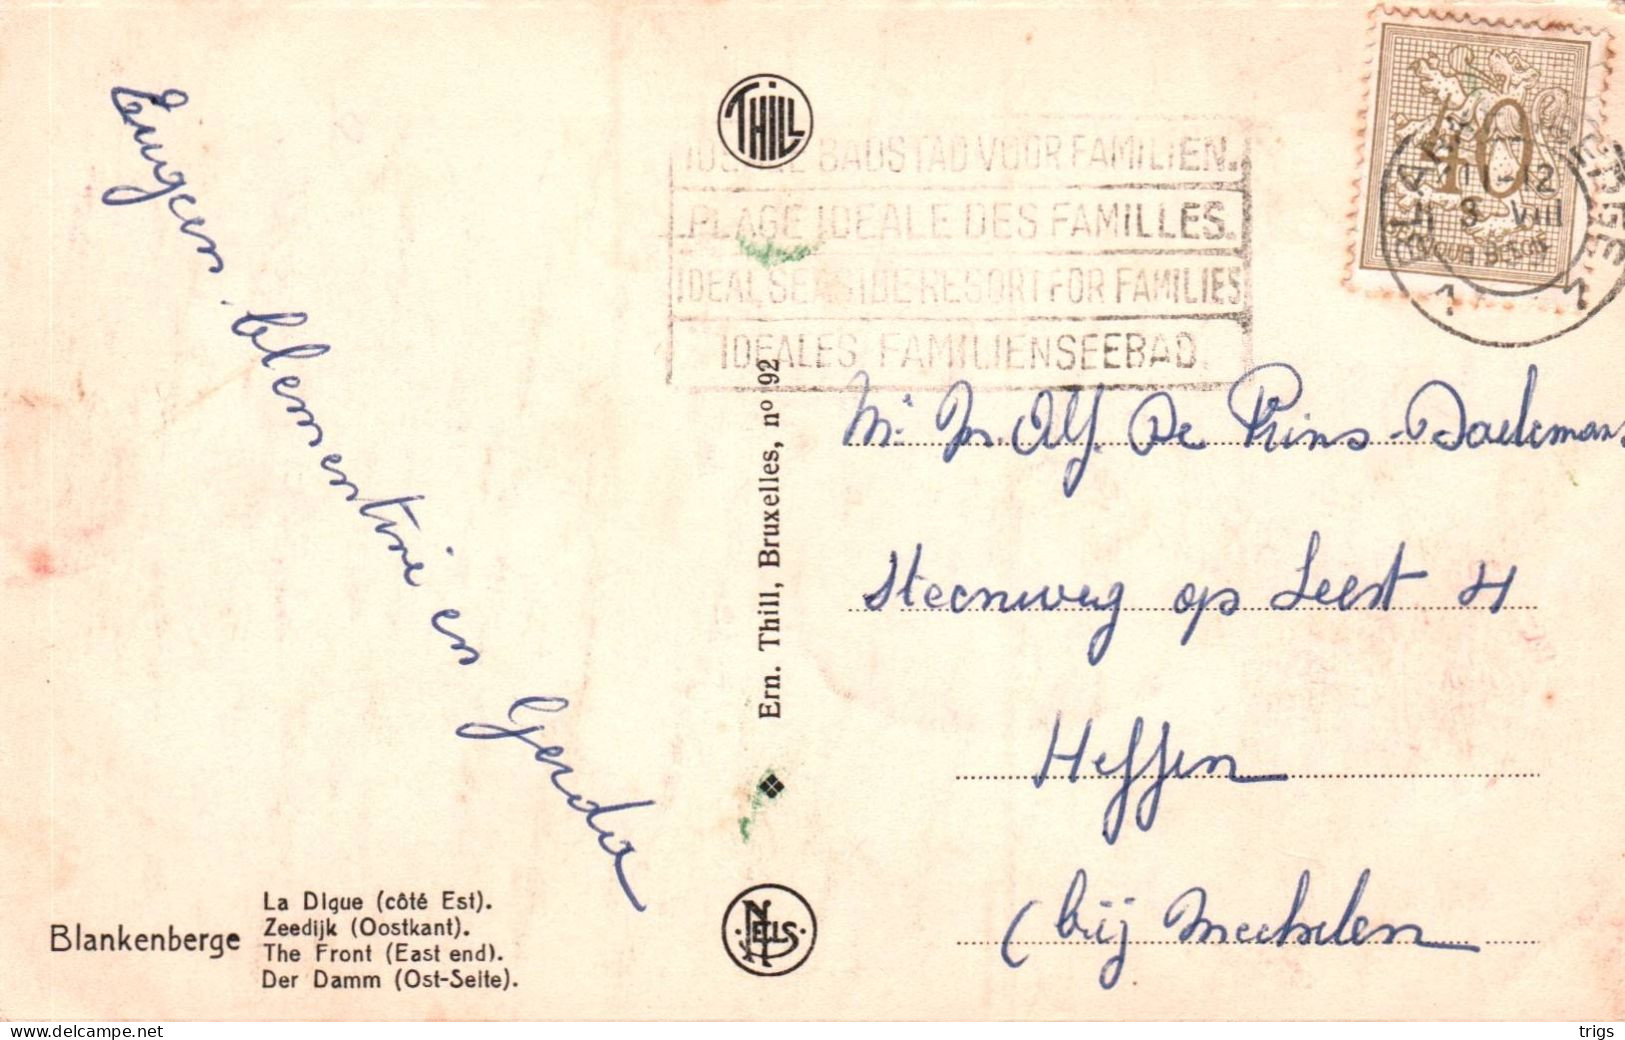 Eugeen, Clementine en Gerda
THILL
BADSTAD VOOR FAMILIEN.
PLAGE IDEALE DES FAMILLES.
IDEAL SEASIDE RESORT FOR FAMILIES
IDEALES FAMILIENSEEBAD.
40
BLANKENBERGE
11-12
3 VIII
1 1
Ern. Thill, Bruxelles, nº 92
Mr. M. Alf. De Prins-Daelemans
Steenweg op Leest 4
Heffen
(bij Mechelen
NELS
Blankenberge
La Digue (côté Est).
Zeedijk (Oostkant).
The Front (East end).
Der Damm (Ost-Seite).
trigs